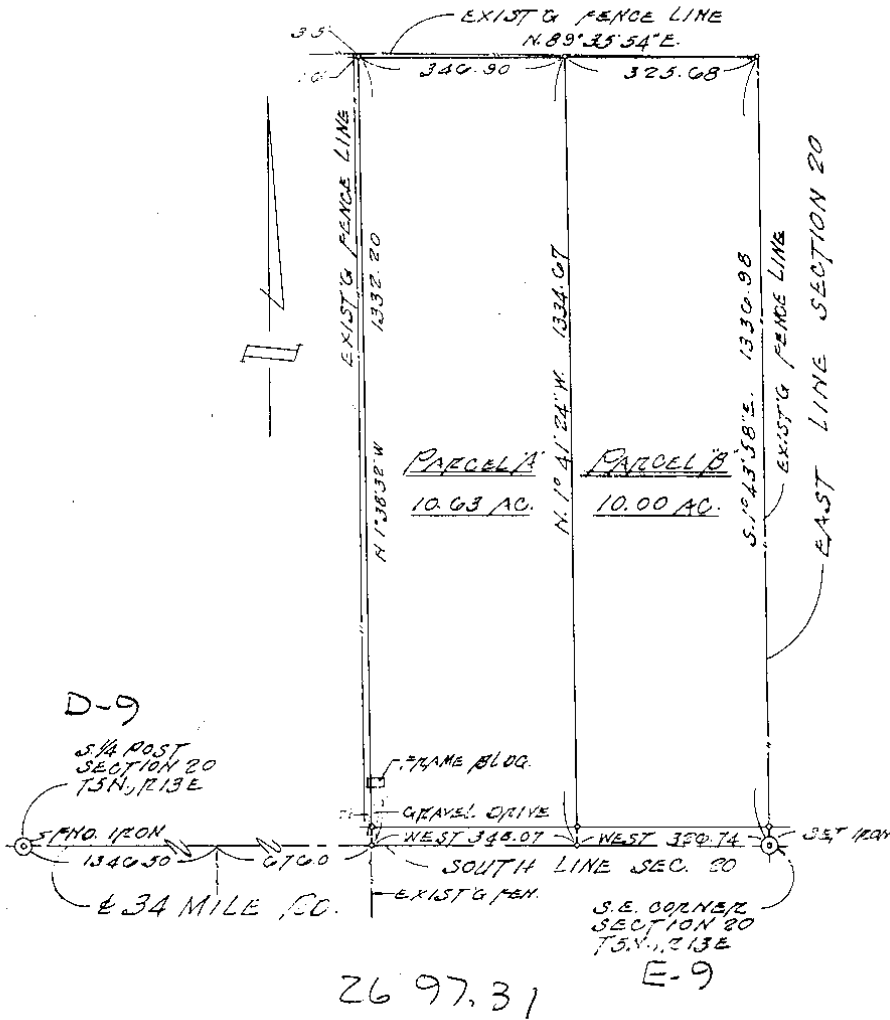 EXIST'G FENCE LINE
N.89°35'54"E.
3.5
346.90
325.68
EXIST'G FENCE LINE
1332.20
N 1°38'32"W
N. 1° 41' 24" W. 1334.67
S. 1° 43' 58" E. 1336.98
EXIST'G FENCE LINE
EAST LINE SECTION 20
PARCEL 'A'
10.63 AC.
PARCEL 'B'
10.00 AC.
D-9
S.1/4 POST
SECTION 20
T5N., R13E
FRAME BLDG.
GRAVEL DRIVE
FND. IRON
1346.50
676.0
WEST 348.07
WEST 326.74
SET IRON
SOUTH LINE SEC. 20
℄ 34 MILE RD.
EXIST'G FEN.
S.E. CORNER
SECTION 20
T5N., R13E
E-9
2697.31